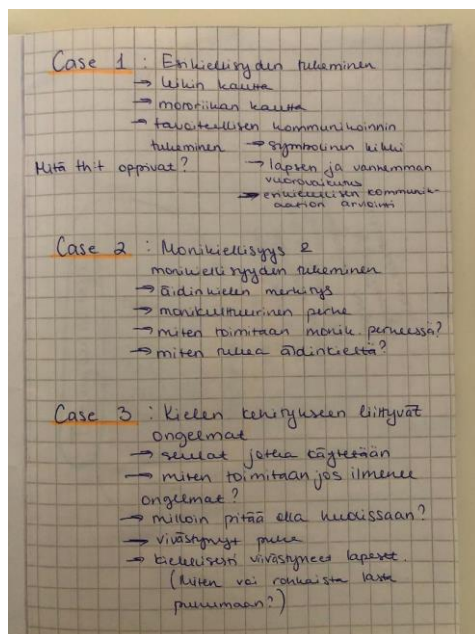 Case 1 : Esikielisyyden tukeminen
→ leikin kautta
→ motoriikan kautta
→ tavoitteellisen kommunikoinnin
tukeminen → symbolinen leikki
Mitä th:t oppivat? → lapsen ja vanhemman
vuorovaikutus
→ esikielellisen kommunik-
aation arviointi
Case 2 : Monikielisyys &
monikielisyyden tukeminen
→ äidinkielen merkitys
→ monikultuurinen perhe
→ miten toimitaan monik. perheessä?
→ miten tukea äidinkieltä?
Case 3 : Kielen kehitykseen liittyvät
ongelmat
→ seulat jotka käytetään
→ miten toimitaan jos ilmenee
ongelmat?
→ milloin pitää olla huolissaan?
→ viivästynyt puhe
→ kielellisesti viivästyneet lapset.
(Miten voi rohkaista lasta
puhumaan?)